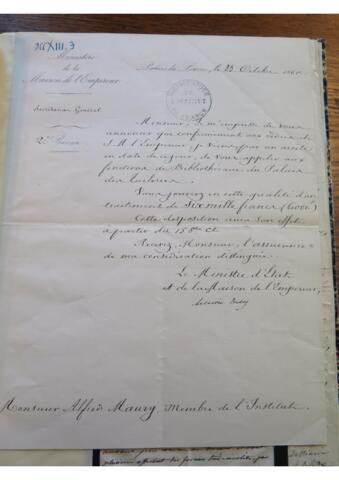 XIII. 3
Ministère
de la
Maison de l'Empereur
Palais du Louvre, le 23 Octobre 1860
Secrétariat Général
BIBLIOTHEQUE
DE
L'INSTITUT
Monsieur, il m'empresse de vous
annoncer que conformément aux ordres de
S. M. l'Empereur, je viens par un arrêté
en date de ce jour, de vous appeler aux
fonctions de Bibliothécaire du Palais
des Tuileries.
Vous jouirez en cette qualité d'un
traitement de Six mille francs (6000f)
Cette disposition aura son effet
à partir du 15
Recevez, Monsieur, l'assurance
de ma considération distinguée.
Le Ministre d'Etat
et de la Maison de l'Empereur,
Monsieur Alfred Maury Membre de l'Institut.